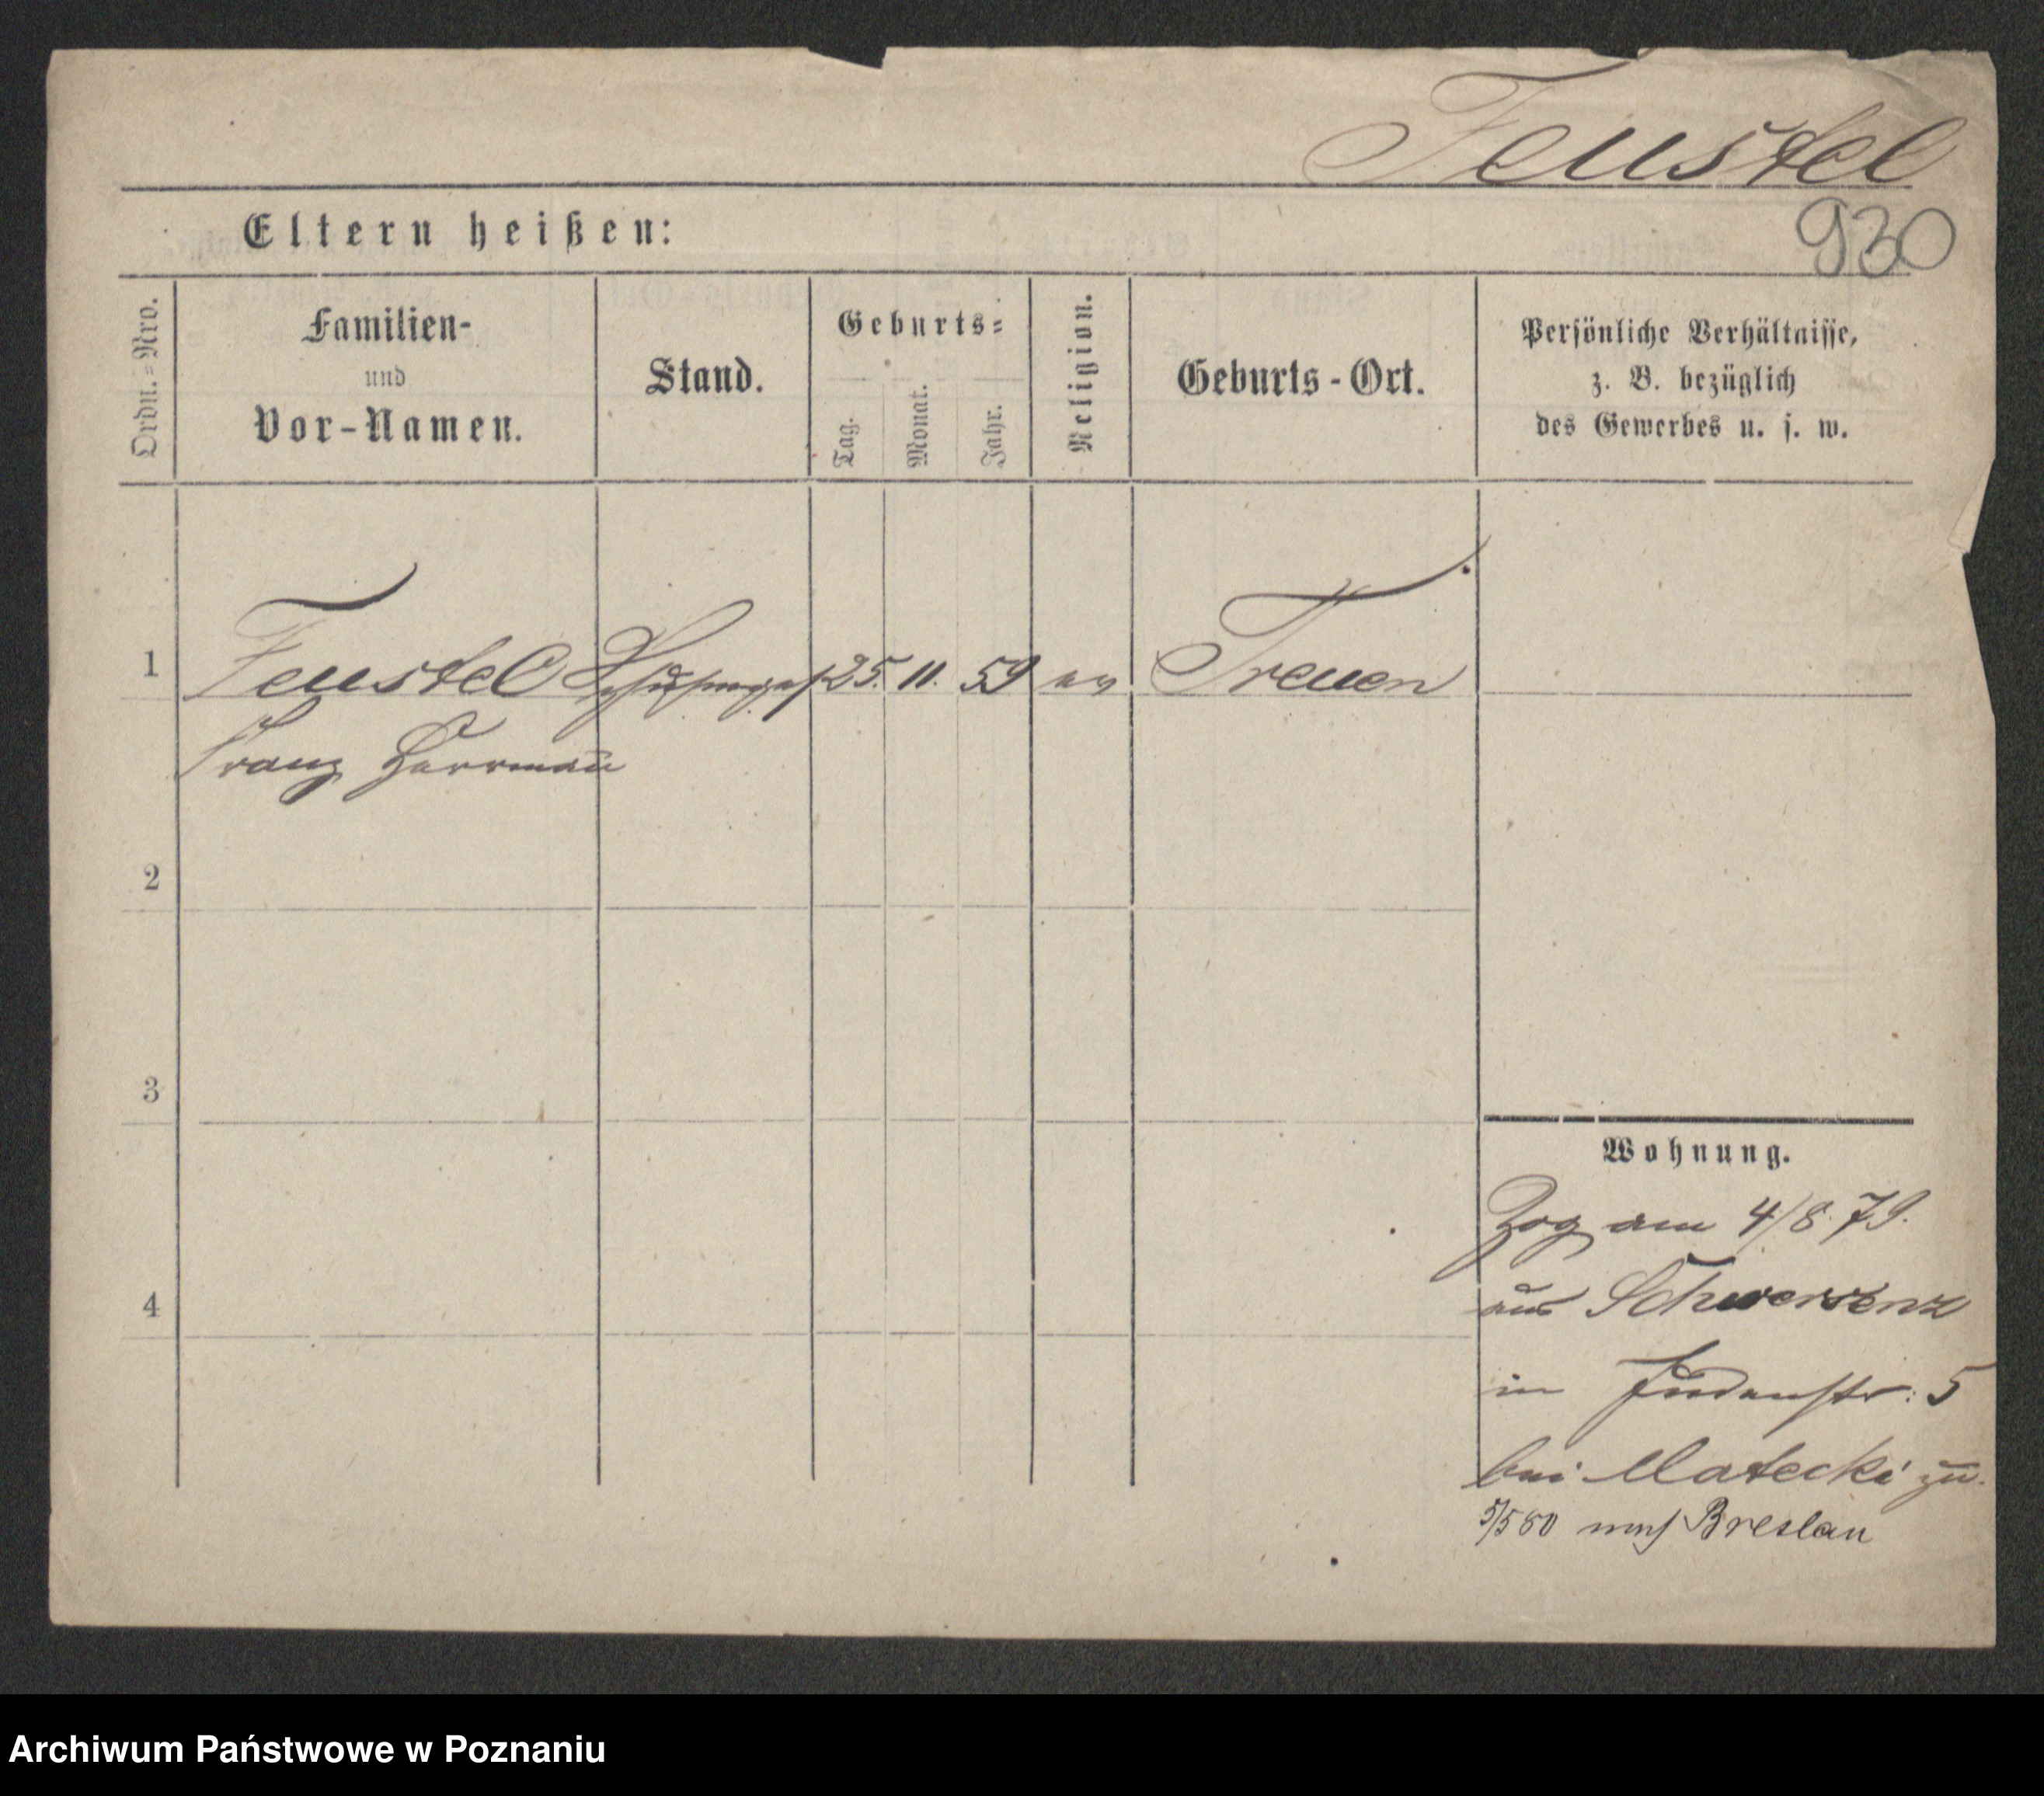 Feustel
930
Eltern heißen:
Ordn.=Nro.
Familien-
und
Vor-Namen.
Stand.
Geburts=
Tag.
Monat.
Jahr.
Religion.
Geburts-Ort.
Persönliche Verhältnisse,
z. B. bezüglich
des Gewerbes u. s. w.
1 Feustel 25. 11. 59 ev Treuen
Franz Herrmañ
2
3
4
Wohnung.
Zog am 4/8. 79.
aus Schwersenz
in Judenstr: 5
bei Matecki zu.
5/5 80 nach Breslau
Archiwum Państwowe w Poznaniu